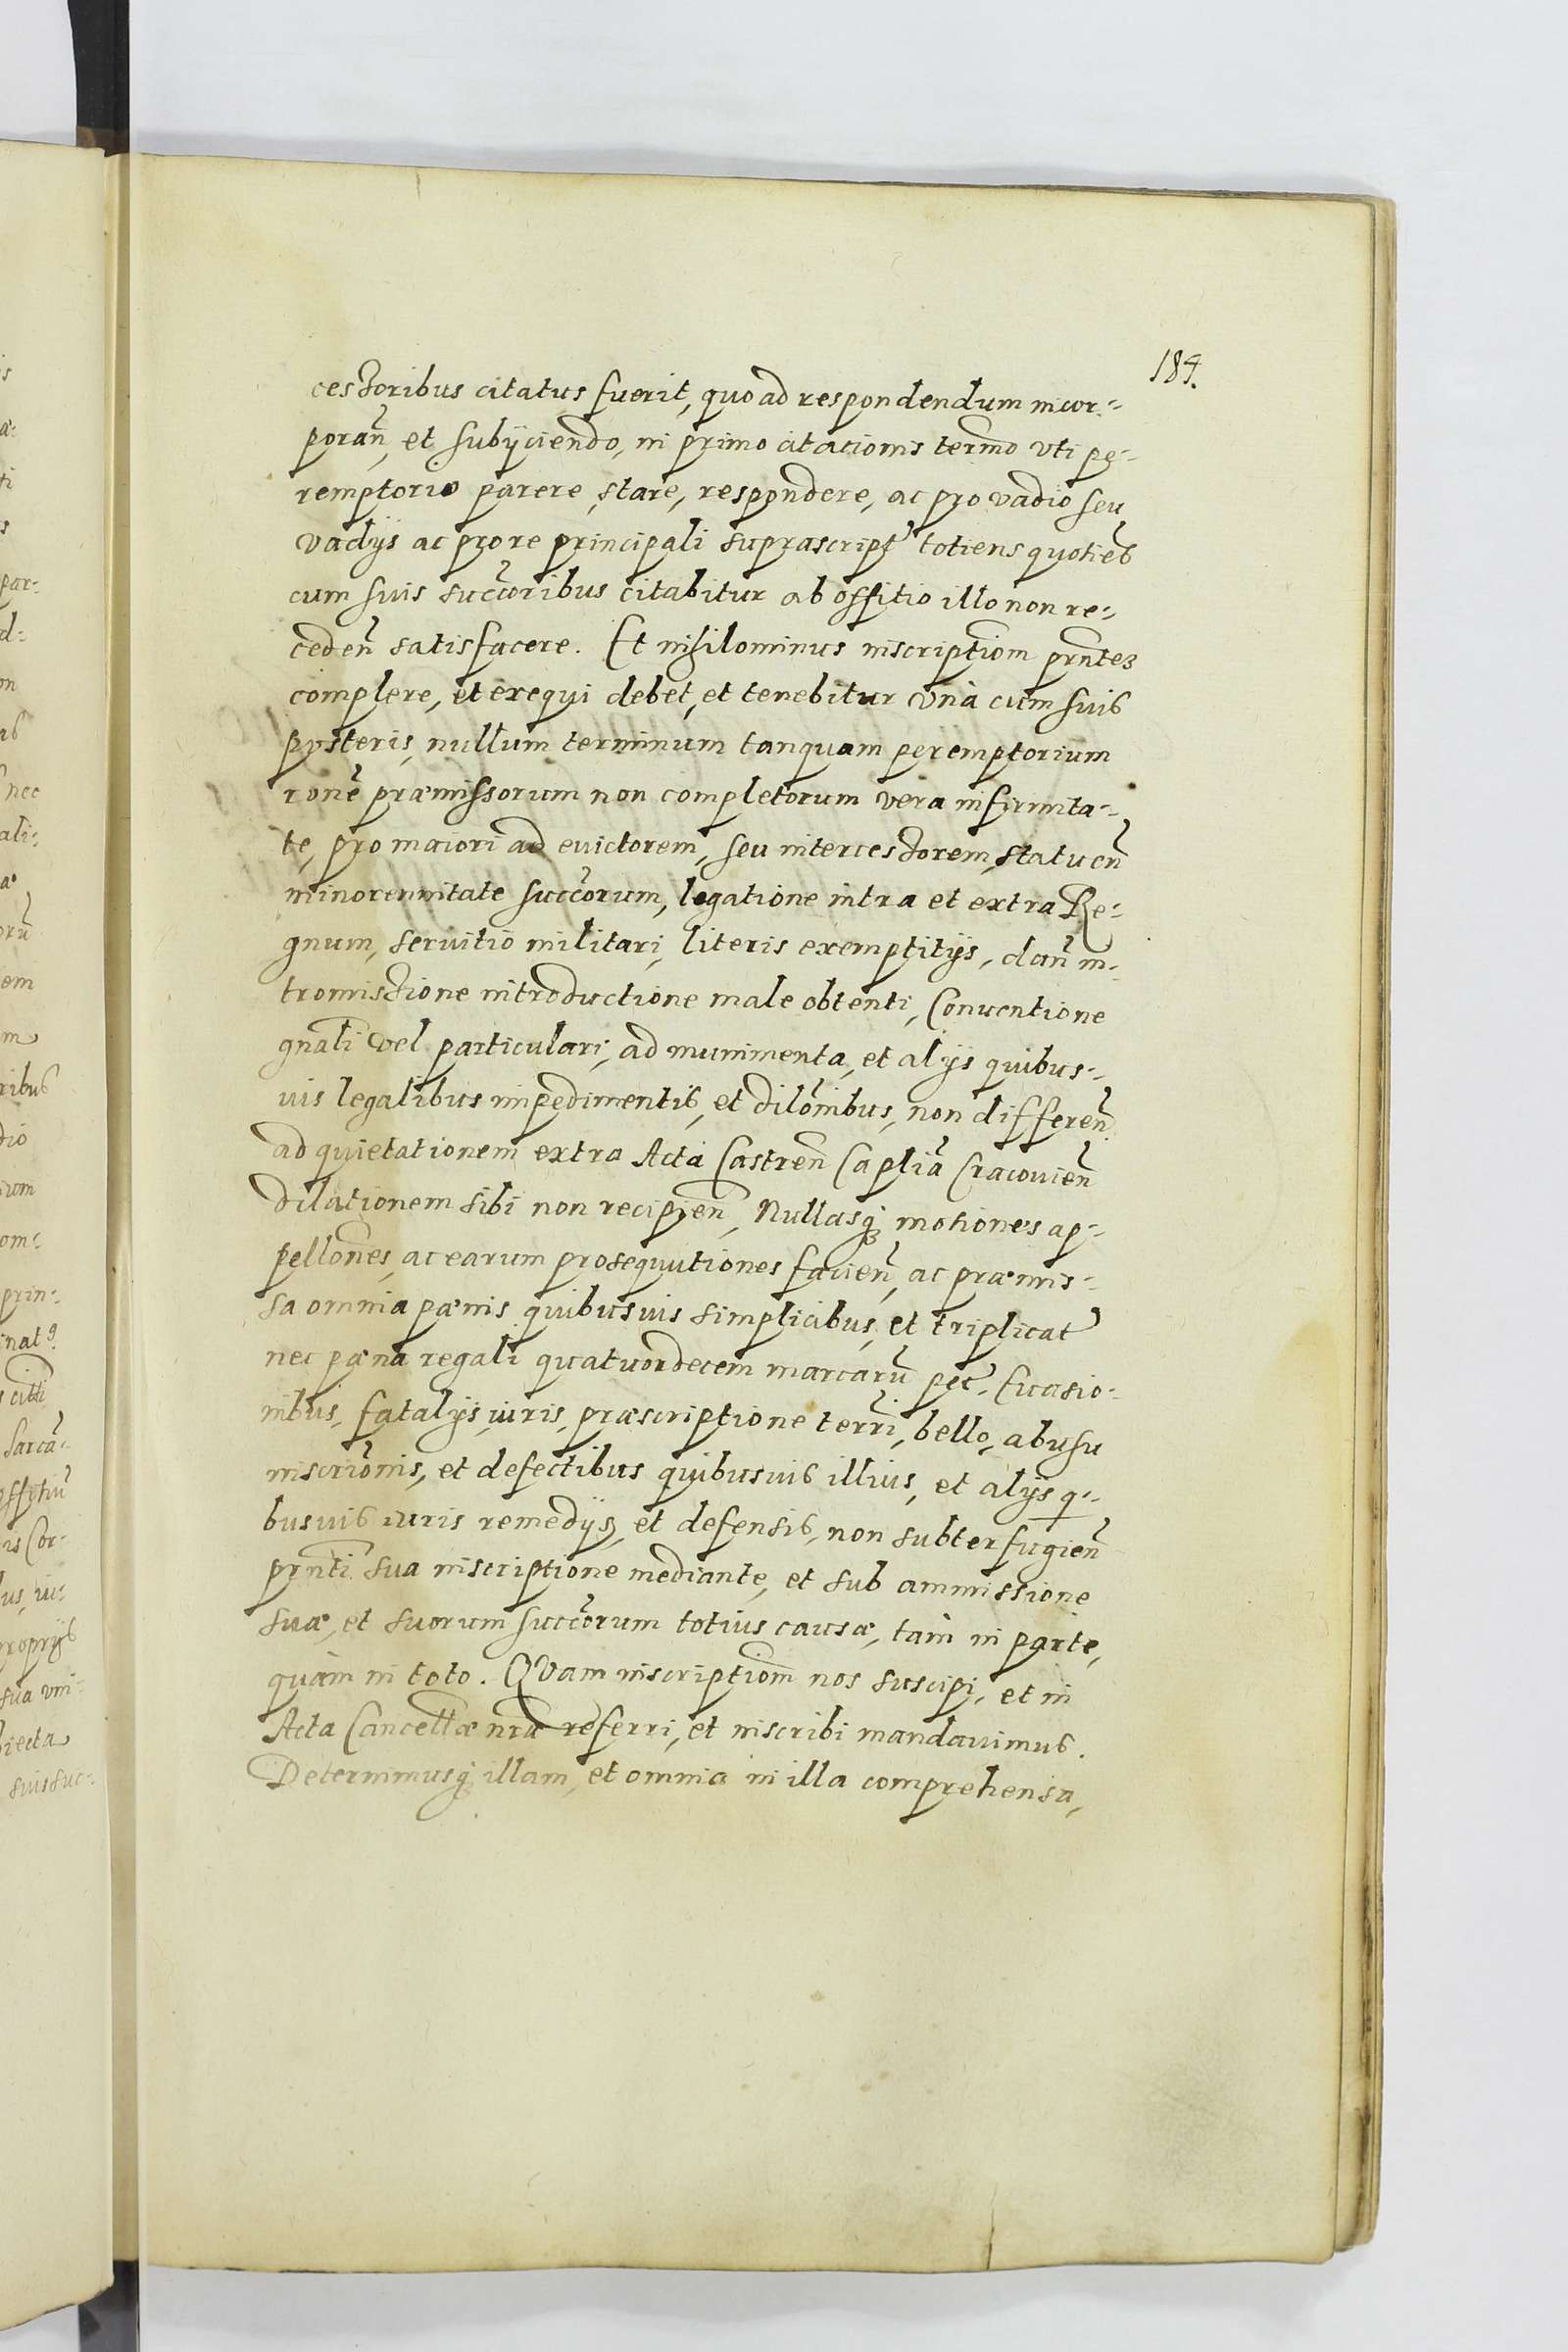 184.
cessoribus citatus fuerit, quo ad respondendum incor-
porañ, et subijciendo, in primo citacionis termo vti pe-
remptorio parere, stare, respondere, ac pro vadio seu
vadijs ac pro re principali suprascript totiens quoties
cum suis succoribus citabitur ab offitio illo non re-
cedeñ satisfacere. Et nihilominus inscriptiom prntez
complere, et exequi debet, et tenebitur vnà cum suis
posteris, nullum terminum tanquam peremptorium
rone præmissorum non completorum vera infirmita-
te, pro maiori ad euictorem, seu intercessorem, statueñ
minorennitate succorum, legatione intra et extra Re-
gnum, seruitio militari, literis exemptitijs, dañ in-
tromissione introductione male obtenti, Conuentione
gnali vel particulari, ad munimenta, et alijs quibus-
uis legalibus impedimentis, et dilonibus, non differeñ
ad quietationem extra Acta Castreñ Caplia Cracouieñ
dilationem sibi non recipieñ, Nullasq; motiones ap-
pellones, ac earum prosequutiones facieñ, ac præmis-
sa omnia pænis quibusuis simplicibus, et triplicat
nec pæna regali quatuordecem marcarũ pec. Euasio-
nibus, fatalijs, iuris, præscriptione terri, bello, abusu
inscrionis, et defectibus quibusuis illius, et alijs q-
busuis iuris remedijs, et defensis, non subterfugieñ
prnti sua inscriptione mediante, et sub ammissione
suæ, et suorum succorum totius causæ, tam in parte,
quàm in toto. QVam inscriptiom nos suscipi, et in
Acta Cancellæ nræ referri, et inscribi mandauimus.
Deternimusq; illam, et omnia in illa comprehensa,